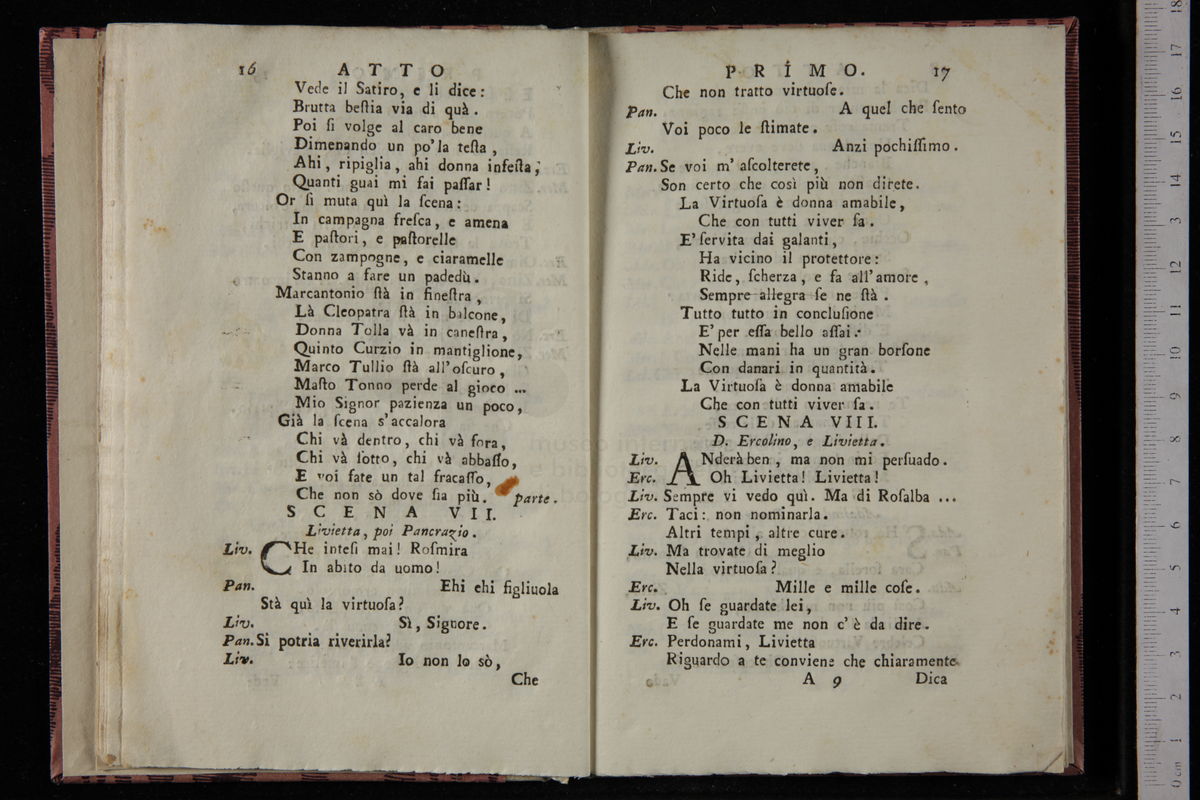 16 ATTO
Vede il Satiro, e li dice:
Brutta beſtia via di quà.
Poi ſi volge al caro bene
Dimenando un po' la teſta,
Ahi, ripiglia, ahi donna infeſta,
Quanti guai mi fai paſſar!
Or ſi muta quì la ſcena:
In campagna freſca, e amena
E paſtori, e paſtorelle
Con zampogne, e ciaramelle
Stanno a fare un padedù.
Marcantonio ſtà in fineſtra,
Là Cleopatra ſtà in balcone,
Donna Tolla và in caneſtra,
Quinto Curzio in mantiglione,
Marco Tullio ſtà all'oſcuro,
Maſto Tonno perde al gioco ...
Mio Signor pazienza un poco,
Già la ſcena s'accalora
Chi và dentro, chi và fora,
Chi và ſotto, chi và abbaſſo,
E voi fate un tal fracaſſo,
Che non sò dove ſia più. parte.
SCENA VII.
Livietta, poi Pancrazio.
Liv. CHe inteſi mai! Roſmira
In abito da uomo!
Pan. Ehi ehi figliuola
Stà quì la virtuoſa?
Liv. Sì, Signore.
Pan. Si potria riverirla?
Liv. Io non lo sò,
Che
PRIMO. 17
Che non tratto virtuoſe.
Pan. A quel che ſento
Voi poco le ſtimate.
Liv. Anzi pochiſſimo.
Pan. Se voi m' aſcolterete,
Son certo che così più non direte.
La Virtuoſa è donna amabile,
Che con tutti viver ſa.
E' ſervita dai galanti,
Ha vicino il protettore:
Ride, ſcherza, e fa all'amore,
Sempre allegra ſe ne ſtà.
Tutto tutto in concluſione
E' per eſſa bello aſſai:
Nelle mani ha un gran borſone
Con danari in quantità.
La Virtuoſa è donna amabile
Che con tutti viver ſa.
SCENA VIII.
D. Ercolino, e Livietta.
Liv. ANderà ben, ma non mi perſuado.
Erc. Oh Livietta! Livietta!
Liv. Sempre vi vedo quì. Ma di Roſalba ...
Erc. Taci: non nominarla.
Altri tempi, altre cure.
Liv. Ma trovate di meglio
Nella virtuoſa?
Erc. Mille e mille coſe.
Liv. Oh ſe guardate lei,
E ſe guardate me non c' è da dire.
Erc. Perdonami, Livietta
Riguardo a te conviene che chiaramente
A 9 Dica